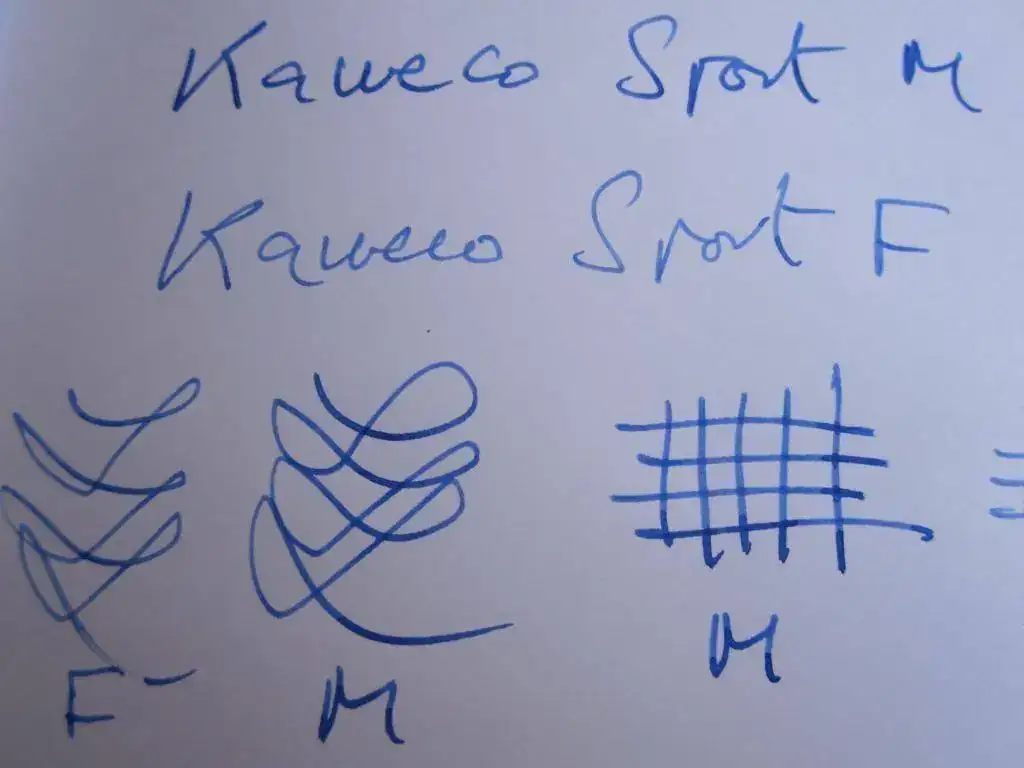 Kaweco Sport M
Kaweco Sport F
M
F M